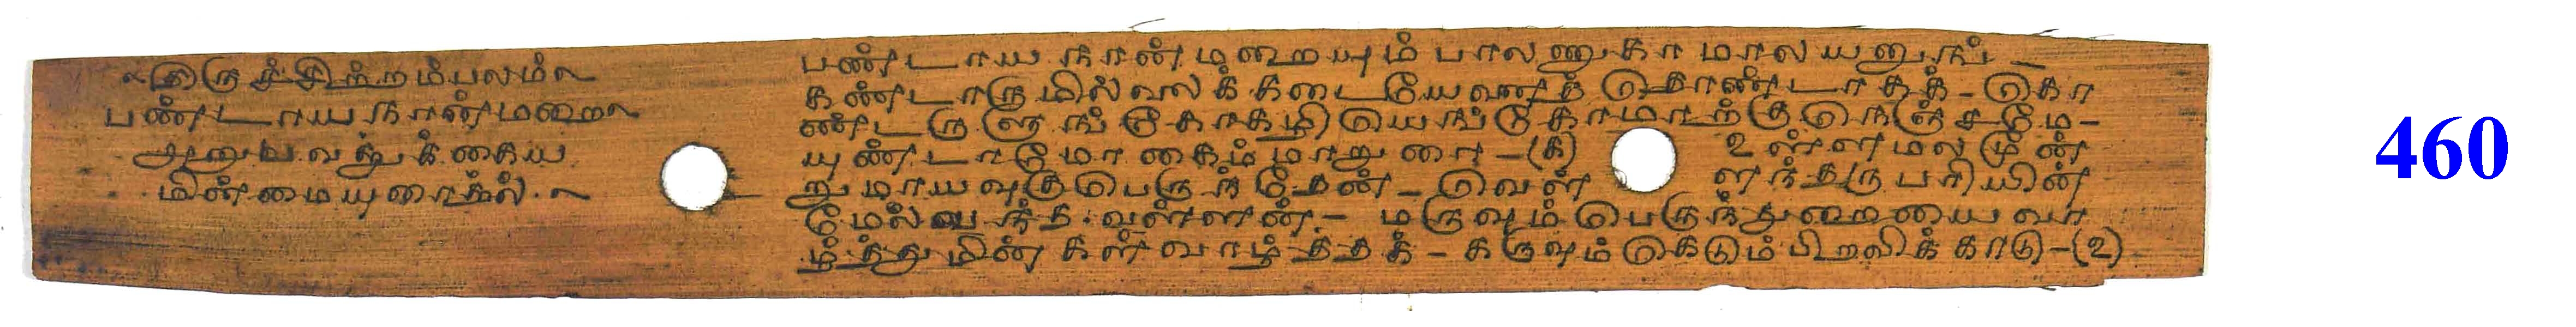 திருச்சிற்றம்பலம்
பண்டாயநான்மறை
அனுபவத்துக்கைய
மின்மையுரைத்தல்
பண்டாயநான்மறையும்பாலணுகாமாலயனுங் -
கண்டாருமில்லைக்கடையேனைத்தொண்டாகக் - கொ
ண்டருளுங்கோகழியெங்கோமாற்குநெஞ்சமே -
யுண்டாமோகைம்மாறுரை - (௧) உள்ளமலமூன்
றுமாயவுகுபெருந்தேன் - வெள் ளந்தருபரியின்
மேல்வந்த வள்ளன் - மருவும்பெருந்துறையைவா
ழ்த்துமின்கள்வாழ்த்தக் - கருவுங்கெடும்பிறவிக்காடு - (௨)
460